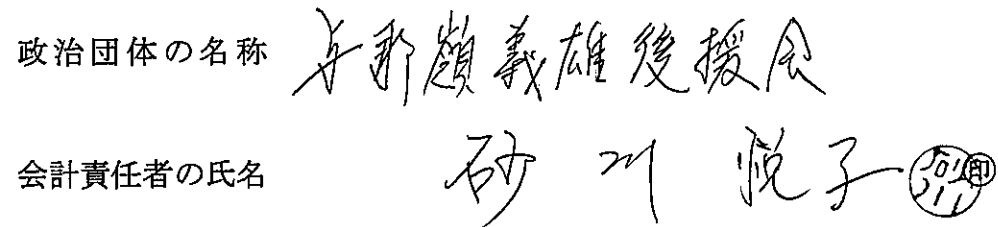 政治団体の名称 与那嶺義雄後援会
会計責任者の氏名 砂川悦子 砂川 印